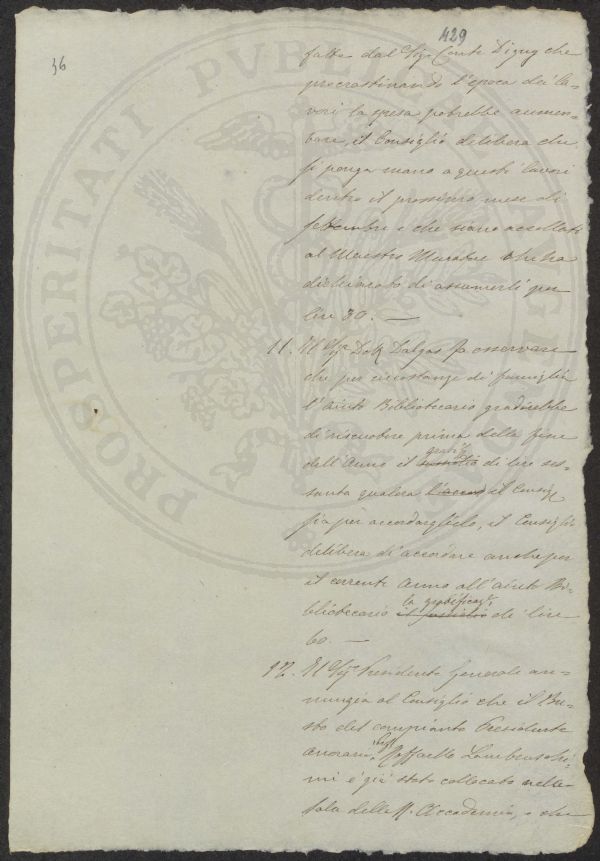 429
36
fatta dal Sig. Conte Digny che
procrastinando l'epoca dei la-
vori la spesa potrebbe aumen-
tare, il Consiglio delibera che
si ponga mano a questi lavori
dentro il prossimo mese di
settembre e che siano accollati
al Maestro che ha
dichiarato di assumerli per
lire 80. —
11. Il Sigr. Dott. Dalgas fa osservare
che per circostanze di famiglia
l'aiuto Bibliotecario gradirebbe
di riscuotere prima della fine
dell'Anno il gratif. di lire ses-
santa qualora il Consig.
sia per accordarglielo, il Consiglio
delibera di accordare anche per
il corrente Anno all'aiuto Bi-
bliotecario la gratificaz. di lire
60. —
12. Il Sigr. Presidente Generale an-
nunzia al Consiglio che il Bu-
sto del compianto Presidente
onorario, Raffaello Lambruschi-
ni è già stato collocato nella
sala della R. Accademia, e che
PROSPERITATI PUBLICAE AUGENDAE